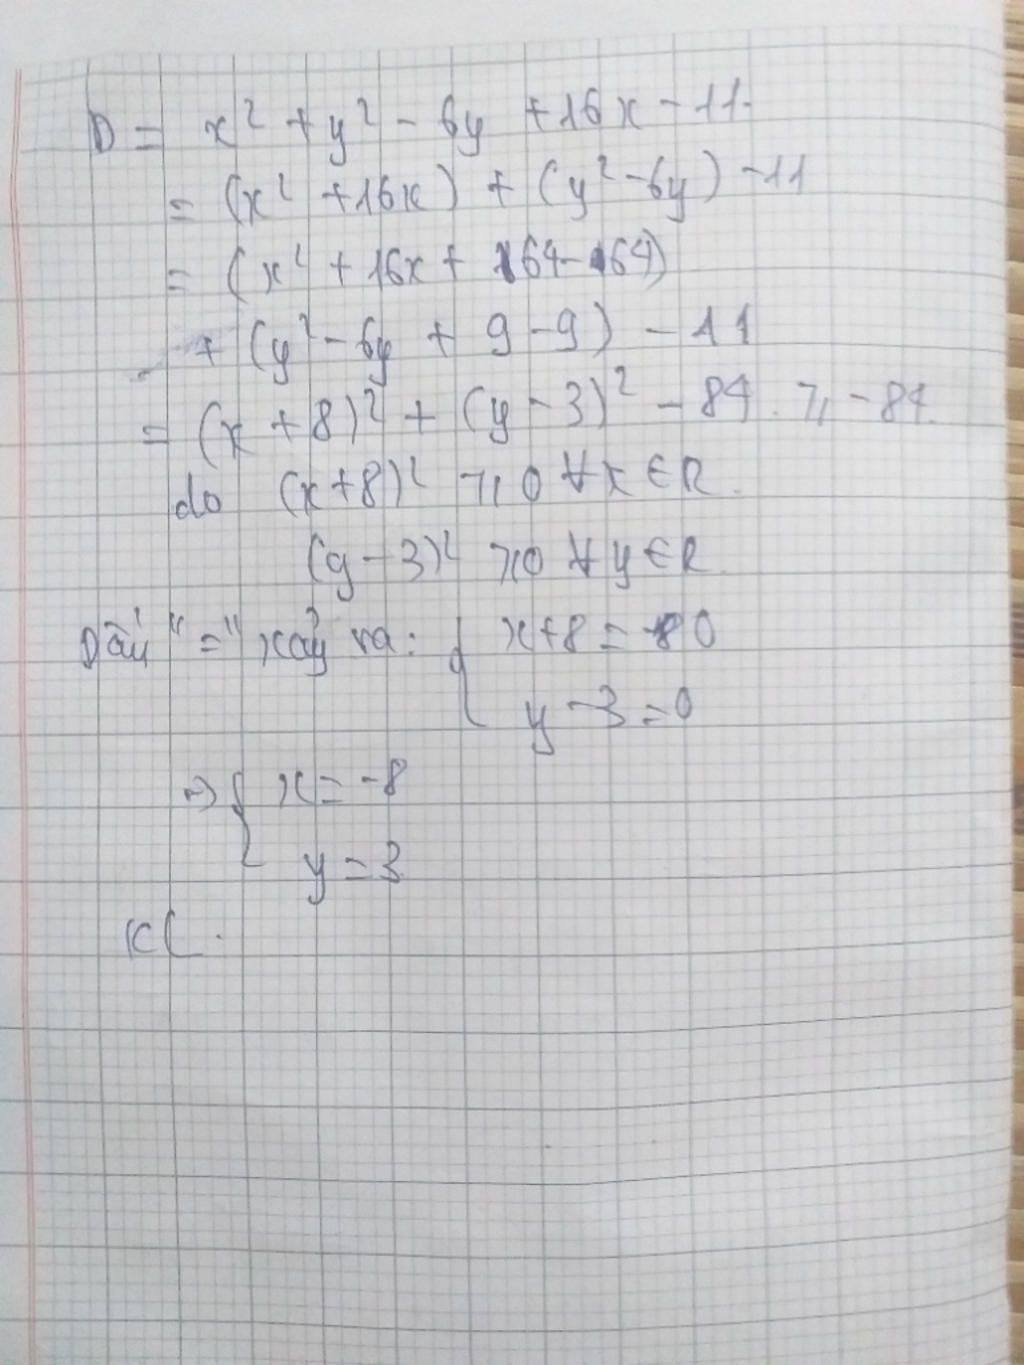 D = x² + y² - 6y + 16x - 11.
= (x² + 16x) + (y² - 6y) - 11
= (x² + 16x + 64 - 64)
+ (y² - 6y + 9 - 9) - 11
= (x + 8)² + (y - 3)² - 84. ≥ - 84.
do (x + 8)² ≥ 0 ∀ x ∈ R.
(y - 3)² ≥ 0 ∀ y ∈ R
Dấu "=" xảy ra: { x + 8 = 0
y - 3 = 0
=> { x = -8
y = 3
KL.